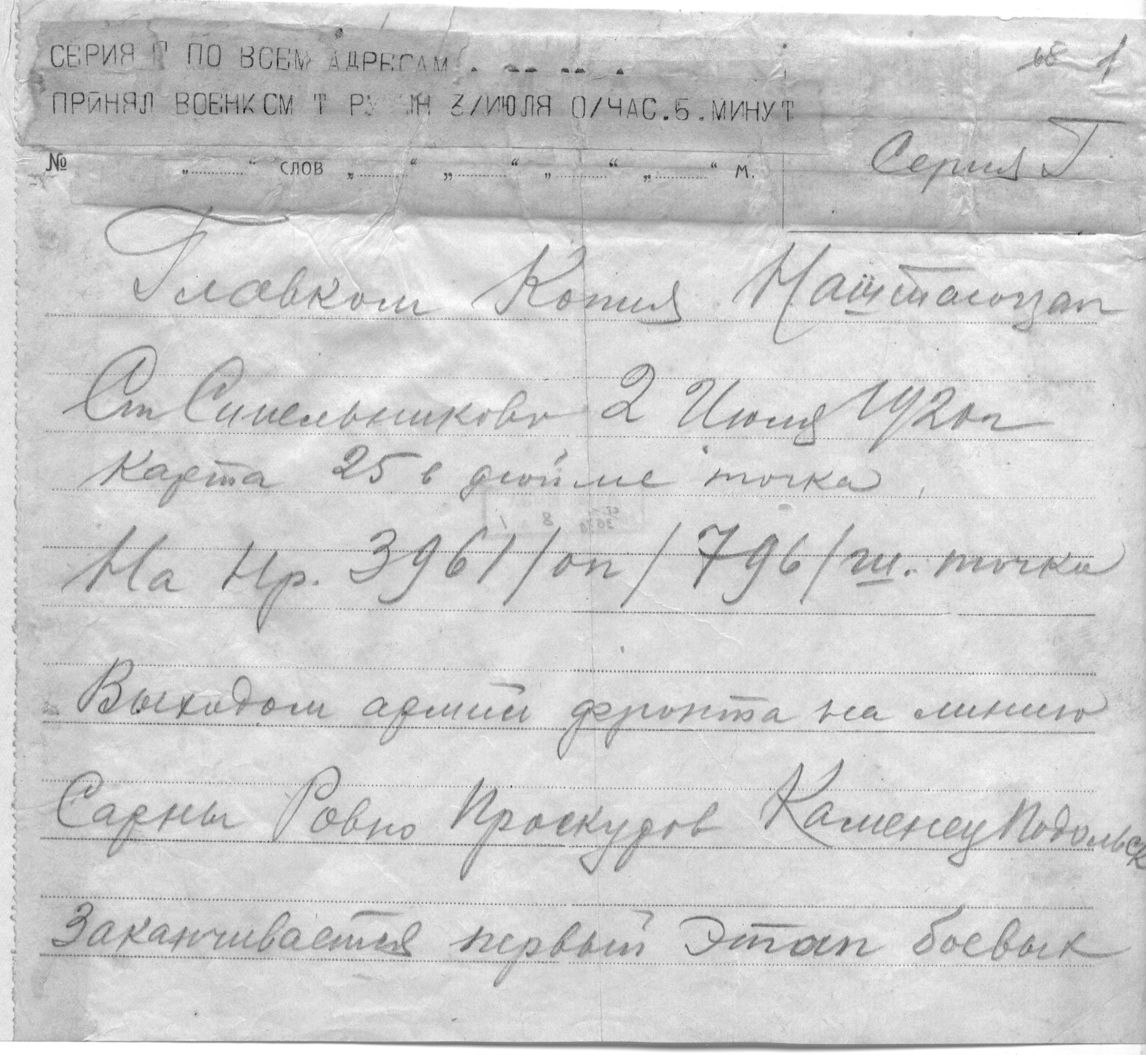 СЕРИЯ Г ПО ВСЕМ АДРЕСАМ
ПРИНЯЛ ВОЕНКОМ 3/ИЮЛЯ 0/ЧАС.5.МИНУТ
68 1
№ „ “ СЛОВ „ “ „ “ „ “ „ “ М.
Серия Г
Главком Копия Наштаюзап
Ст Синельниково 2 Июля 1920г
карта 25 в дюйме точка
На Нр. 3961/оп/796/ш. точка
Выходом армий фронта на линию
Сарны Ровно Проскуров Каменец Подольск
Заканчивается первый Этап боевых